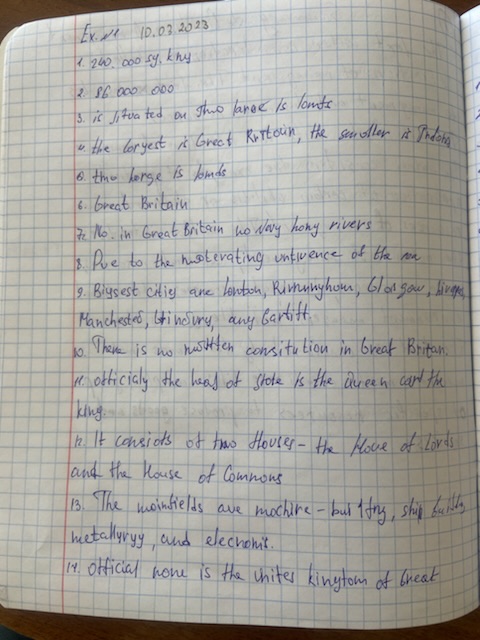 Ex. №1 10.07.2023
1. 240.000 sq. kmy
2. 86.000 000
3. is situated on two large Is lomts
4. the largest is Great Britain, the smoller is Irdona
5. two large is lomds
6. Great Britain
7. No. in Great Britain no very hony rivers
8. Due to the moterating untvence of the sea
9. Biysest cities are London, Rimunyhom, Glosgow, Liverpo,
Manchested, Edindury, any Cartiff.
10. There is no writtten consitution in Great Britan.
11. officialy the head of state is the Queen card the
king.
12. It consists of two Houses – the Hove of Lords
and the House of Commons
13. The moinfields ave mochire – building, ship building
metallyryy, and elecronic.
14. Official none is the unites kinytom of Great